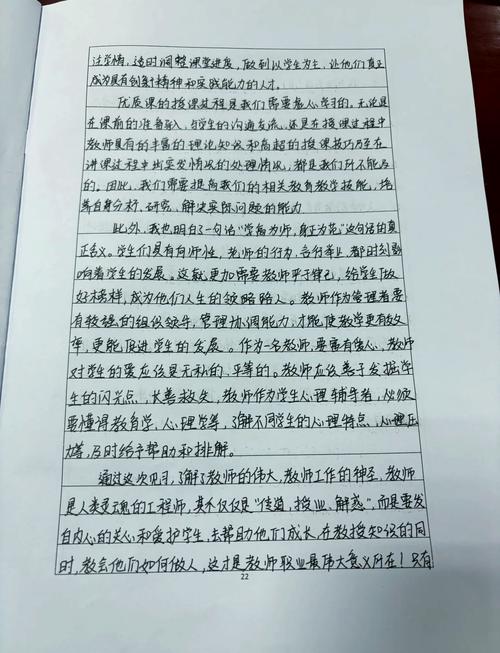 注学情，适时调整课堂进度，做到以学生为主，让他们真正
成为具有创新精神和实践能力的人才。
优质课的授课过程是我们需要悉心学习的。无论是
在课前的准备，与学生的沟通交流，还是在授课过程中
教师具有的丰富的理论知识和高超的授课技巧乃至在
讲课过程中出突发情况的处理情况，都是我们所不能及
的。因此，我们需要提高我们的相关教育教学技能，培
养自身分析、研究、解决实际问题的能力
此外，我也明白了一句话"学高为师，身正为范"这句话的真
正含义。学生们具有向师性，老师的行为、言行举止，都时刻影
响着学生的发展。这就更加需要教师严于律己，给学生做
好榜样，成为他们人生的领路人。教师作为管理者要
有较强的组织领导，管理协调能力，才能使教学更有效
率，更能促进学生的发展。作为一名教师，要富有爱心，教师
对学生的爱应该是无私的、平等的。教师应该善于发掘学
生的闪光点，长善救失，教师作为学生心理辅导者，必须
要懂得教育学，心理学等，了解不同学生的心理特点，心理压
力，及时给予帮助和排解。
通过这次见习，了解了教师的伟大，教师工作的神圣，教师
是人类灵魂的工程师，其不仅仅是"传道，授业、解惑"，而是要发
自内心的关心和爱护学生，去帮助他们成长，在教授知识的同
时，教会他们如何做人，这才是教师职业最伟大意义所在！只有
22